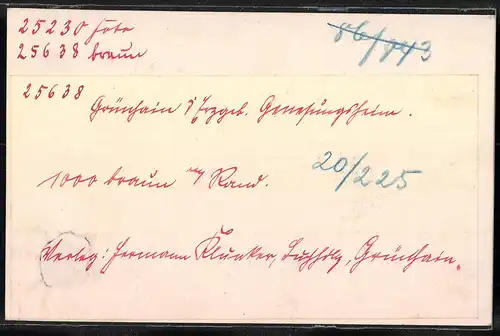 25230 foto
25638 braun
86/943
25638
Grünhain i/Erzgeb. Genesungsheim.
1000 braun m/ Rand.
20/2 25
Verlag: Hermann Klunker, Buchhdlg, Grünhain.